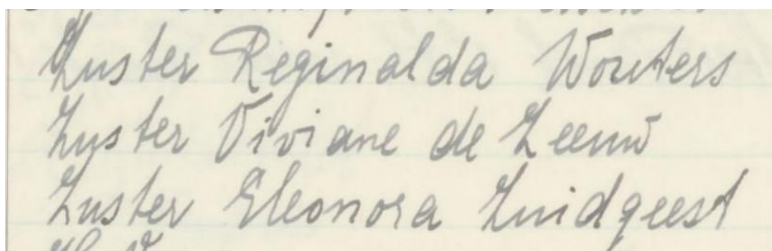 Zuster Reginalda Wouters
Zuster Viviane de Leeuw
Zuster Eleonora Zuidgeest